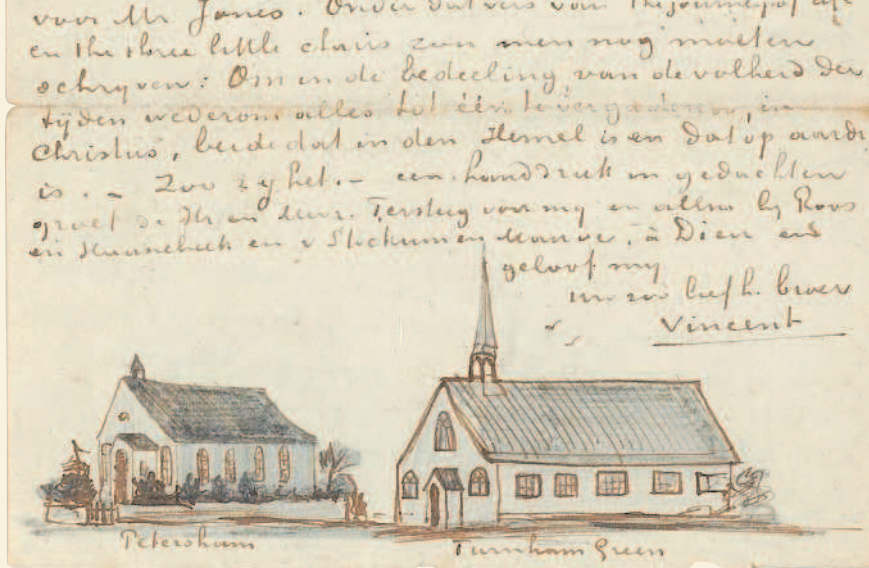 voor Mr Jones. Onder dat vers van The journey of life
en the three little chairs zou men nog moeten
schryven: Om in de bedeeling van de volheid der
tyden wederom alles tot één te vergaderen, in
Christus, beide dat in den Hemel is en dat op aarde
is. – Zoo zy het. – een handdruk in gedachten
groet de Hr en Mevr. Tersteeg voor my en allen by Roos
en Haanebeek en v Stockum en Mauve, à Dieu en
geloof my
uw zoo liefh. broer
Vincent
Petersham
Turnham Green